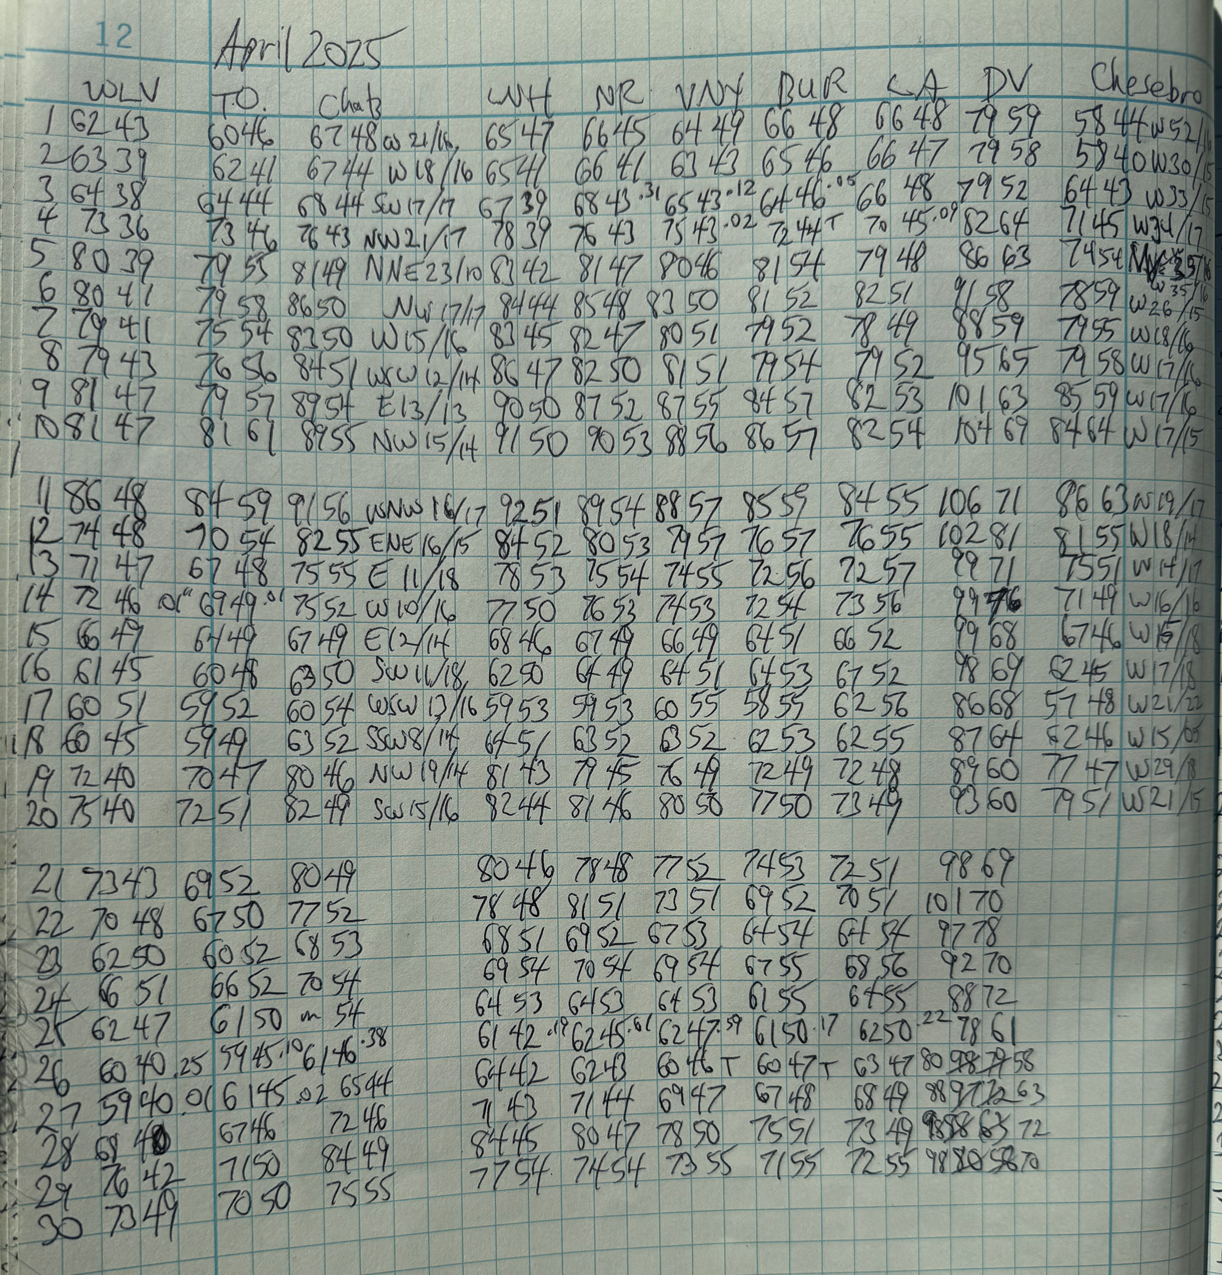 12
April 2025
WLV T.O. Chats WH NR VNY BUR LA DV Chesebro
1 62 43 60 46 67 48 W 21/16 65 47 66 45 64 49 66 48 66 48 79 59 58 44 W 52/
2 63 39 62 41 67 44 W 18/16 65 41 66 41 63 43 65 46 66 47 79 58 58 40 W 30/15
3 64 38 64 44 68 44 SW 17/17 67 39 68 43 .31 65 43 .12 64 46 .05 66 48 79 52 64 43 W 33/15
4 73 36 73 46 76 43 NW 21/17 78 39 76 43 75 43 .02 72 44 T 70 45 .09 82 64 71 45 W 34/17
5 80 39 79 55 81 49 NNE 23/10 83 42 81 47 80 46 81 54 79 48 86 63 74 54
6 80 41 79 58 86 50 NW 17/17 84 44 85 48 83 50 81 52 82 51 91 58 78 59 W 26/15
7 79 41 75 54 83 50 W 15/16 83 45 82 47 80 51 79 52 78 49 88 59 79 55 W 18/16
8 79 43 76 56 84 51 WSW 12/14 86 47 82 50 81 51 79 54 79 52 95 65 79 58 W 17/16
9 81 47 79 57 89 54 E 13/13 90 50 87 52 87 55 84 57 82 53 101 63 85 59 W 17/16
10 81 47 81 61 89 55 NW 15/14 91 50 90 53 88 56 86 57 82 54 104 69 84 64 W 17/15
11 86 48 84 59 91 56 WNW 16/17 92 51 89 54 88 57 85 59 84 55 106 71 86 63 W 19/17
12 74 48 70 54 82 55 ENE 16/15 84 52 80 53 79 57 76 57 76 55 102 81 81 55 W 18/14
13 71 47 67 48 75 55 E 11/18 78 53 75 54 74 55 72 56 72 57 99 71 75 51 W 14/17
14 72 46 .01" 69 49 .01 75 52 W 10/16 77 50 76 53 74 53 72 54 73 56 99 76 71 49 W 16/16
15 66 49 64 49 67 49 E 12/14 68 46 67 49 66 49 64 51 66 52 99 68 67 46 W 15/18
16 61 45 60 48 63 50 SW 11/18 62 50 64 49 64 51 64 53 67 52 98 69 62 45 W 17/18
17 60 51 59 52 60 54 WSW 13/16 59 53 59 53 60 55 58 55 62 56 86 68 57 48 W 21/22
18 60 45 59 49 63 52 SSW 8/14 64 51 63 52 63 52 62 53 62 55 87 64 62 46 W 15/
19 72 40 70 47 80 46 NW 19/14 81 43 79 45 76 49 72 49 72 48 89 60 77 47 W 29/18
20 75 40 72 51 82 49 SW 15/16 82 44 81 46 80 50 77 50 73 49 93 60 79 51 W 21/15
21 73 43 69 52 80 49 80 46 78 48 77 52 74 53 72 51 98 69
22 70 48 67 50 77 52 78 48 81 51 73 51 69 52 70 51 101 70
23 62 50 60 52 68 53 68 51 69 52 67 53 64 54 64 54 97 78
24 66 51 66 52 70 54 69 54 70 54 69 54 67 55 68 56 92 70
25 62 47 61 50 m 54 64 53 64 53 64 53 61 55 64 55 88 72
26 60 40 .25 59 45 .19 61 46 .38 61 42 .19 62 45 .61 62 47 .59 61 50 .17 62 50 .22 78 61
27 59 40 .01 61 45 .02 65 44 64 42 62 43 60 46 T 60 47 T 63 47 80 58
28 68 40 67 46 72 46 71 43 71 44 69 47 67 48 68 49 88 63
29 76 42 71 50 84 49 84 45 80 47 78 50 75 51 73 49 98 72
30 73 49 70 50 75 55 77 54 74 54 73 55 71 55 72 55 98 70